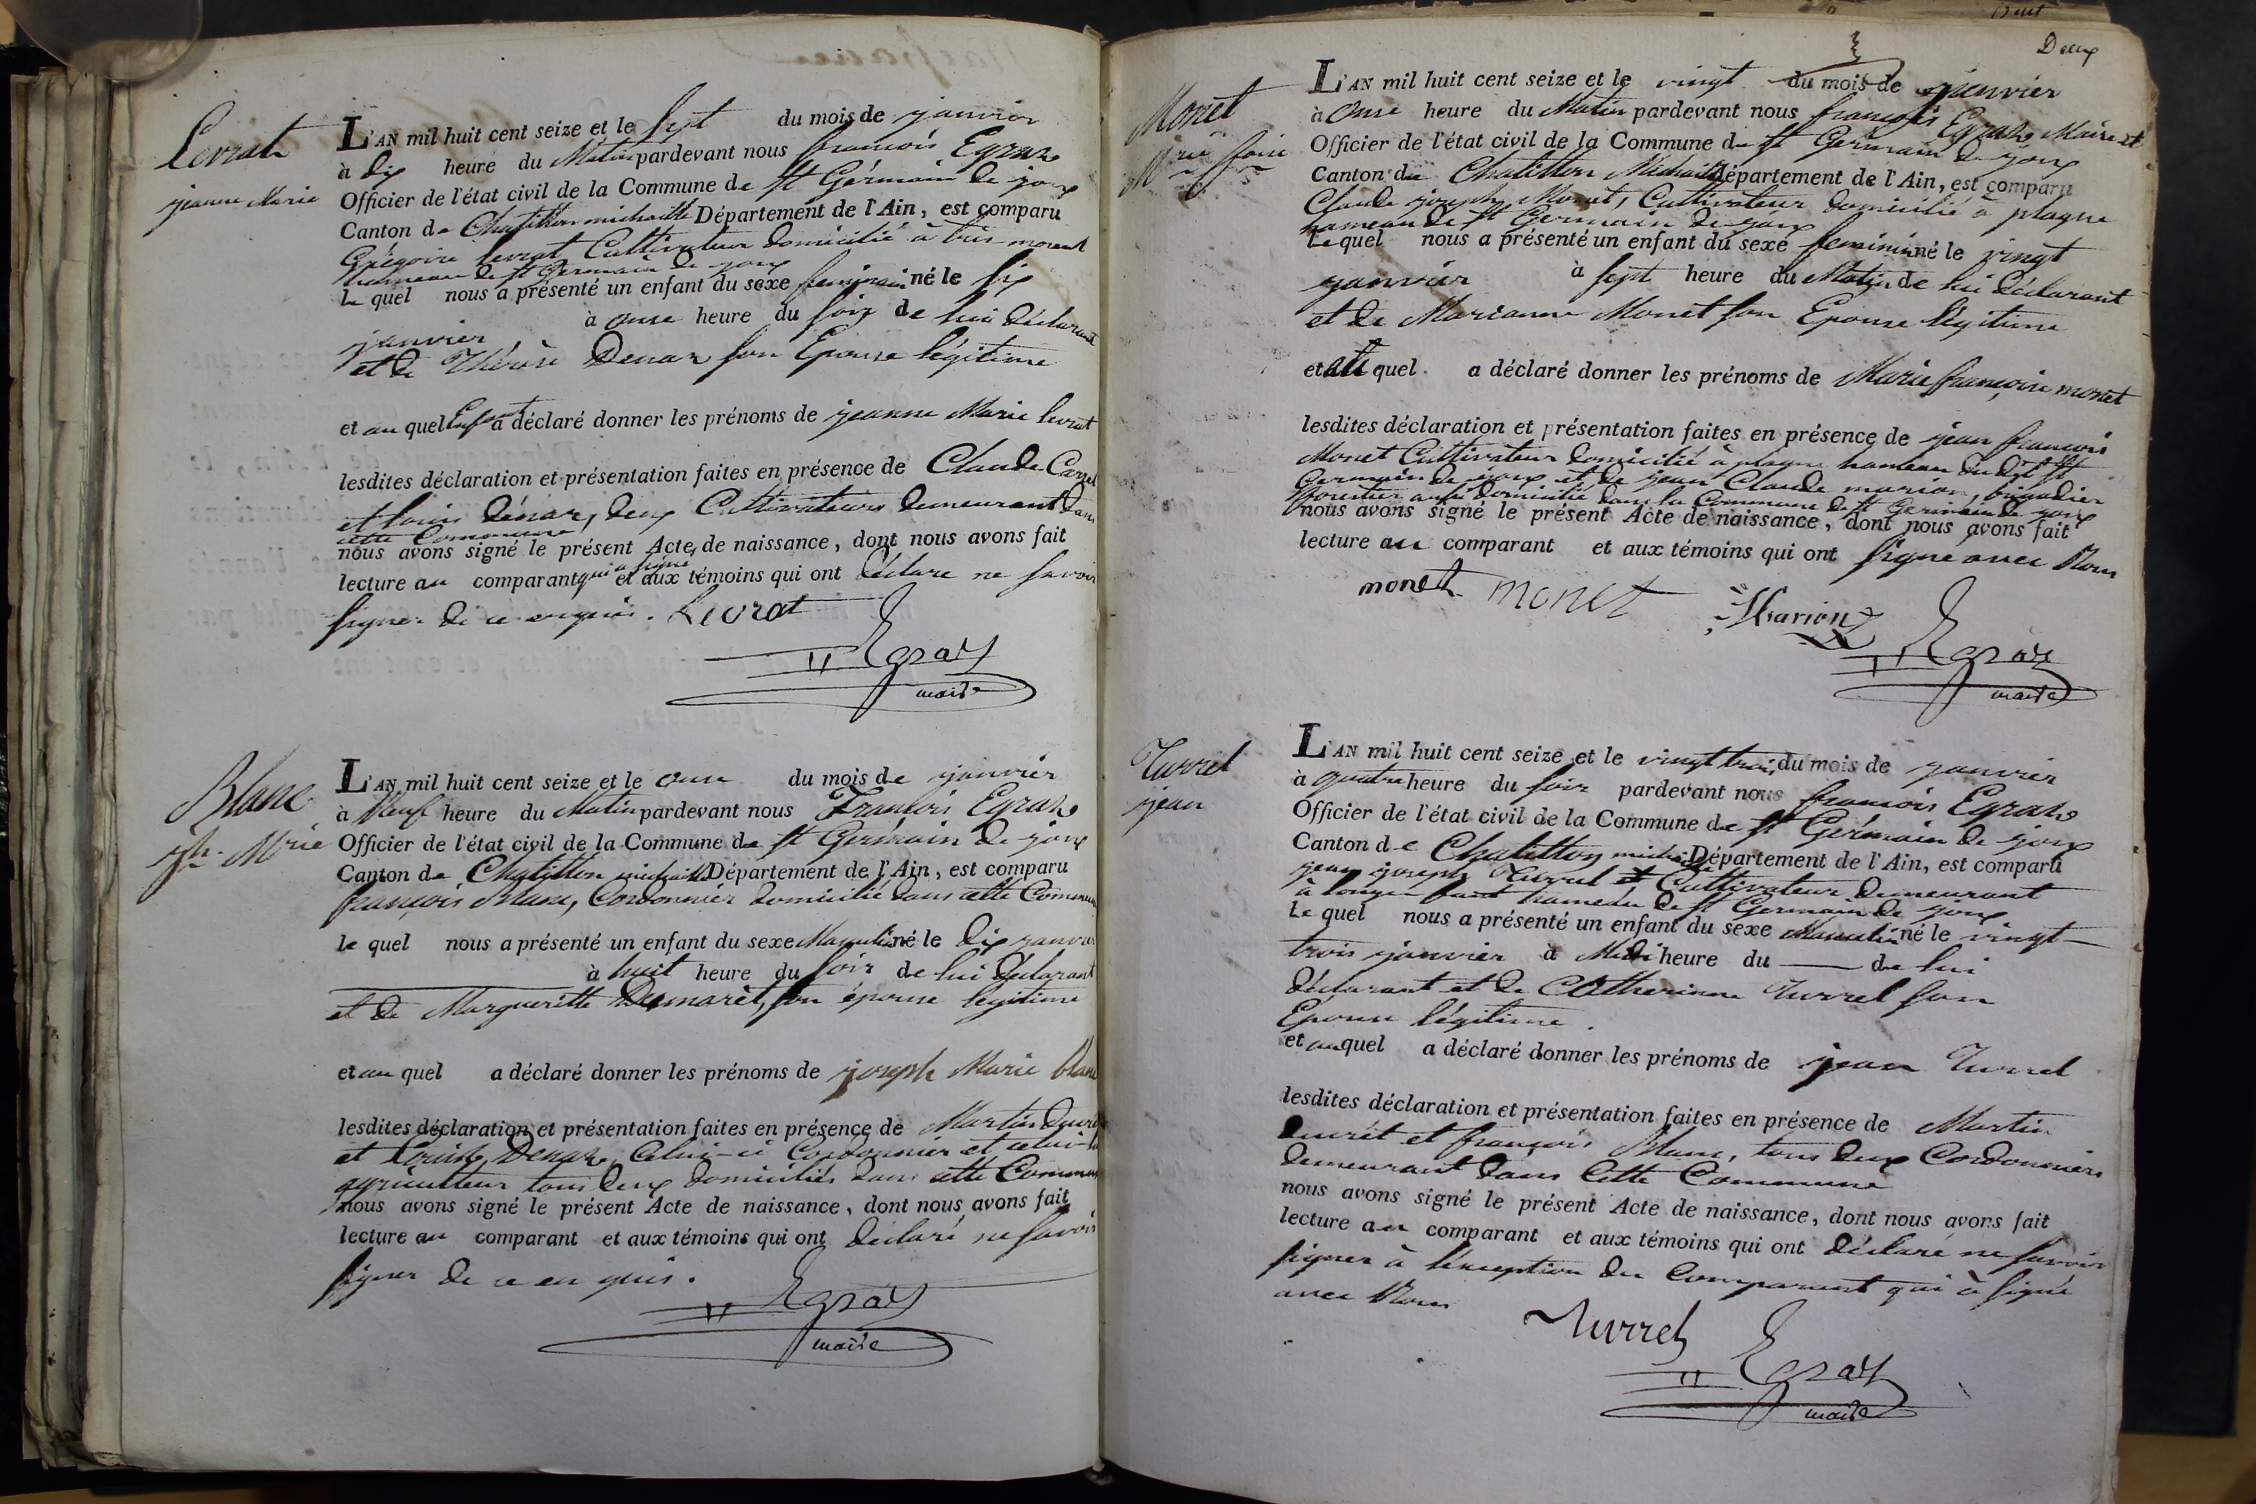 Levrat
jeanne Marie
L'AN mil huit cent seize et le sept du mois de janvier
à dix heure du Matin pardevant nous françois Egraz
Officier de l'état civil de la Commune de St Germain de joux
Canton de Chatillon michaille Département de l'Ain, est comparu
Grégoire levrat Cultivateur domicilié à
hameau de St Germain de joux
le quel nous a présenté un enfant du sexe feminin né le six
janvier à onze heure du soir de lui déclarant
et de Thérèse Denaz son Epouse légitime
et au quel Enfant a déclaré donner les prénoms de jeanne Marie levrat
lesdites déclaration et présentation faites en présence de Claude
et louis dénaz, deux Cultivateurs demeurant dans
cette Commune
nous avons signé le présent Acte de naissance, dont nous avons fait
lecture au comparant qui a signé et aux témoins qui ont déclaré ne savoir
signer de ce enquis. Levrat
Egraz
maire
Blanc
jh. Marie
L'AN mil huit cent seize et le onze du mois de janvier
à Neuf heure du Matin pardevant nous François Egraz
Officier de l'état civil de la Commune de St Germain de joux
Canton de Chatillon michaille Département de l'Ain, est comparu
françois Blanc, Cordonnier domicilié dans cette Commune
le quel nous a présenté un enfant du sexe Masculin né le dix janvier
à huit heure du soir de lui déclarant
et de Margueritte Demaret, son épouse légitime
et au quel a déclaré donner les prénoms de joseph Marie blanc
lesdites déclaration et présentation faites en présence de Martin
et Denaz, Celui-ci Cordonnier et celui-là
agriculteur tous deux domiciliés dans cette Commune
nous avons signé le présent Acte de naissance, dont nous avons fait
lecture au comparant et aux témoins qui ont déclaré ne savoir
signer de ce en quis.
Egraz
maire
Deux
Monet
Mrie foise
L'AN mil huit cent seize et le vingt du mois de janvier
à onze heure du Matin pardevant nous françois Egraz Maire et
Officier de l'état civil de la Commune de St Germain de joux
Canton de Chatillon Michaille Département de l'Ain, est comparu
Claude joseph Monet, Cultivateur domicilié à plagne
hameau de St Germain de joux
Le quel nous a présenté un enfant du sexe feminin né le vingt
janvier à sept heure du Matin de lui déclarant
et de Marianne Monet son Epouse légitime
et au quel a déclaré donner les prénoms de Marie françoise monet
lesdites déclaration et présentation faites en présence de jean françois
Monet Cultivateur domicilié à plagne hameau du dit St
Germain de joux et de jean Claude marion, brigadier
forestier aussi domicilié dans la Commune de St Germain de joux
nous avons signé le présent Acte de naissance, dont nous avons fait
lecture au comparant et aux témoins qui ont signé avec Nous
monet monet Marion
Egraz
maire
Turrel
jean
L'AN mil huit cent seize et le vingt trois du mois de janvier
à quatre heure du soir pardevant nous françois Egraz
Officier de l'état civil de la Commune de St Germain de joux
Canton de Chatillon michaille Département de l'Ain, est comparu
jean joseph Turrel et Cultivateur demeurant
à hameau de St Germain de joux
Le quel nous a présenté un enfant du sexe Masculin né le vingt
trois janvier à Midi heure du de lui
déclarant et de Catherinne Turrel son
Epouse légitime.
et au quel a déclaré donner les prénoms de jean Turrel
lesdites déclaration et présentation faites en présence de Martin
et françois Blanc, tous deux Cordonniers
demeurant dans Cette Commune
nous avons signé le présent Acte de naissance, dont nous avons fait
lecture au comparant et aux témoins qui ont déclaré ne savoir
signer à l'exception du Comparant qui à signé
avec Nous
Turrel Egraz
maire